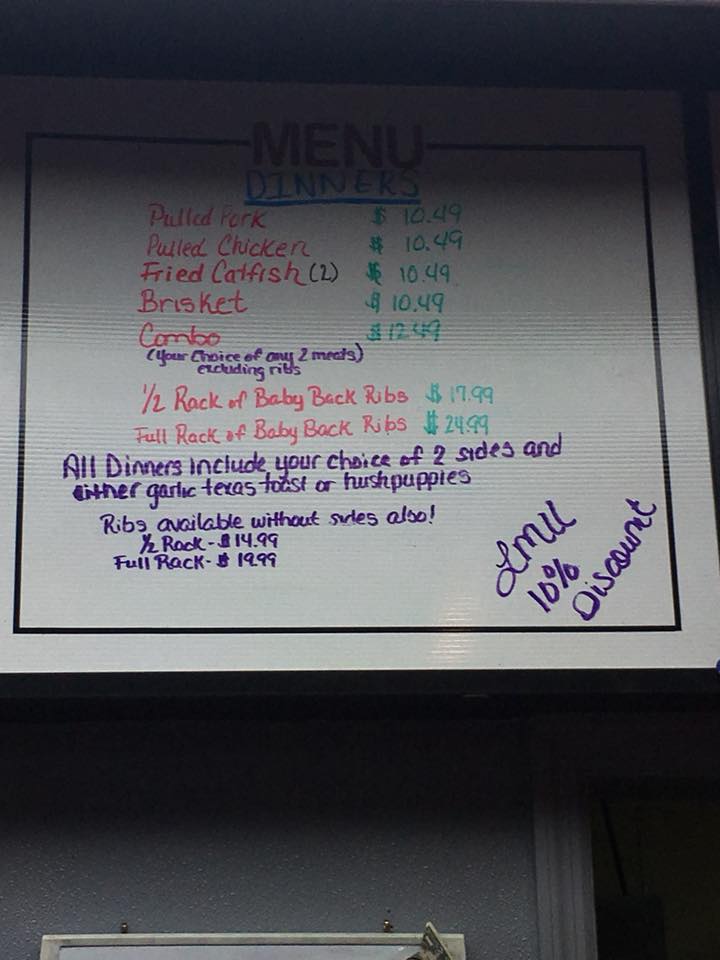 MENU
DINNERS
Pulled Pork $ 10.49
Pulled Chicken $ 10.49
Fried Catfish (2) $ 10.49
Brisket $ 10.49
Combo $ 12.49
(Your Choice of any 2 meats)
excluding ribs
1/2 Rack of Baby Back Ribs $ 17.99
Full Rack of Baby Back Ribs $ 24.99
All Dinners include your choice of 2 sides and
either garlic texas toast or hushpuppies
Ribs available without sides also!
1/2 Rack - $ 14.99
Full Rack - $ 19.99
LMU
10%
Discount